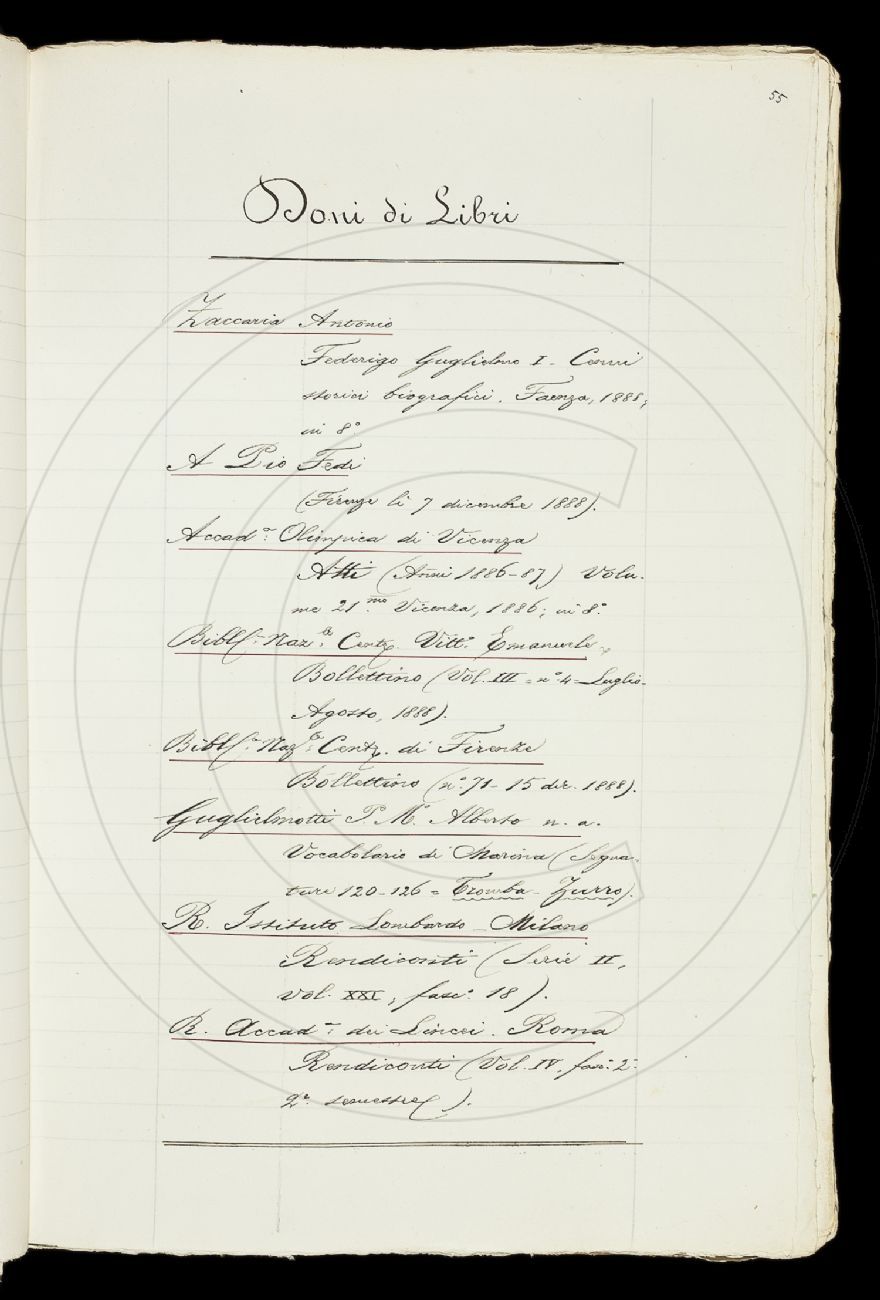 55
Doni di Libri
Zaccaria Antonio
Federigo Guglielmo I - Cenni
storici biografici. Faenza, 1888;
in 8°
A Pio Fedi
(Firenze li 7 dicembre 1888).
Accad.ª Olimpica di Vicenza
Atti (Anni 1886-87) Volu-
me 21.mo Vicenza, 1886; in 8°
Bibl.ª Naz.ª Cent. Vitt.º Emanuele
Bollettino (Vol. III = n° 4 = Luglio-
Agosto, 1888).
Bibl.ª Naz.ª Cent. di Firenze
Bollettino (n° 71 - 15 dic. 1888).
Guglielmotti P. M. Alberto n. a.
Vocabolario di Marina (Segna-
ture 120-126 = Tromba - Zurro).
R. Istituto Lombardo - Milano
Rendiconti (Serie II,
Vol. XXI, fasc.º 18).
R. Accad.ª dei Lincei. Roma
Rendiconti (Vol. IV, fasc.º 2º
2º semestre).